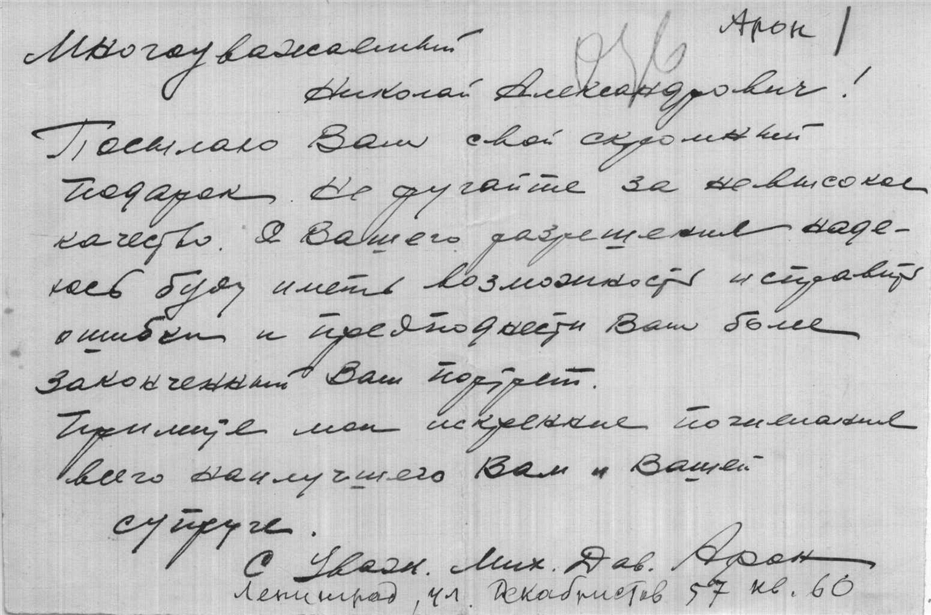 Арон
Многоуважаемый
Николай Александрович!
Посылаю Вам свой скромный
подарок. Не ругайте за невысокое
качество. С Вашего разрешения наде-
юсь буду иметь возможность исправить
ошибки и преподнести Вам более
законченный Ваш портрет.
Примите мои искренние
всего наилучшего Вам и Вашей
супруге.
С Уваж. Мих. Дав. Арон
Ленинград, ул. Декабристов 57 кв. 60